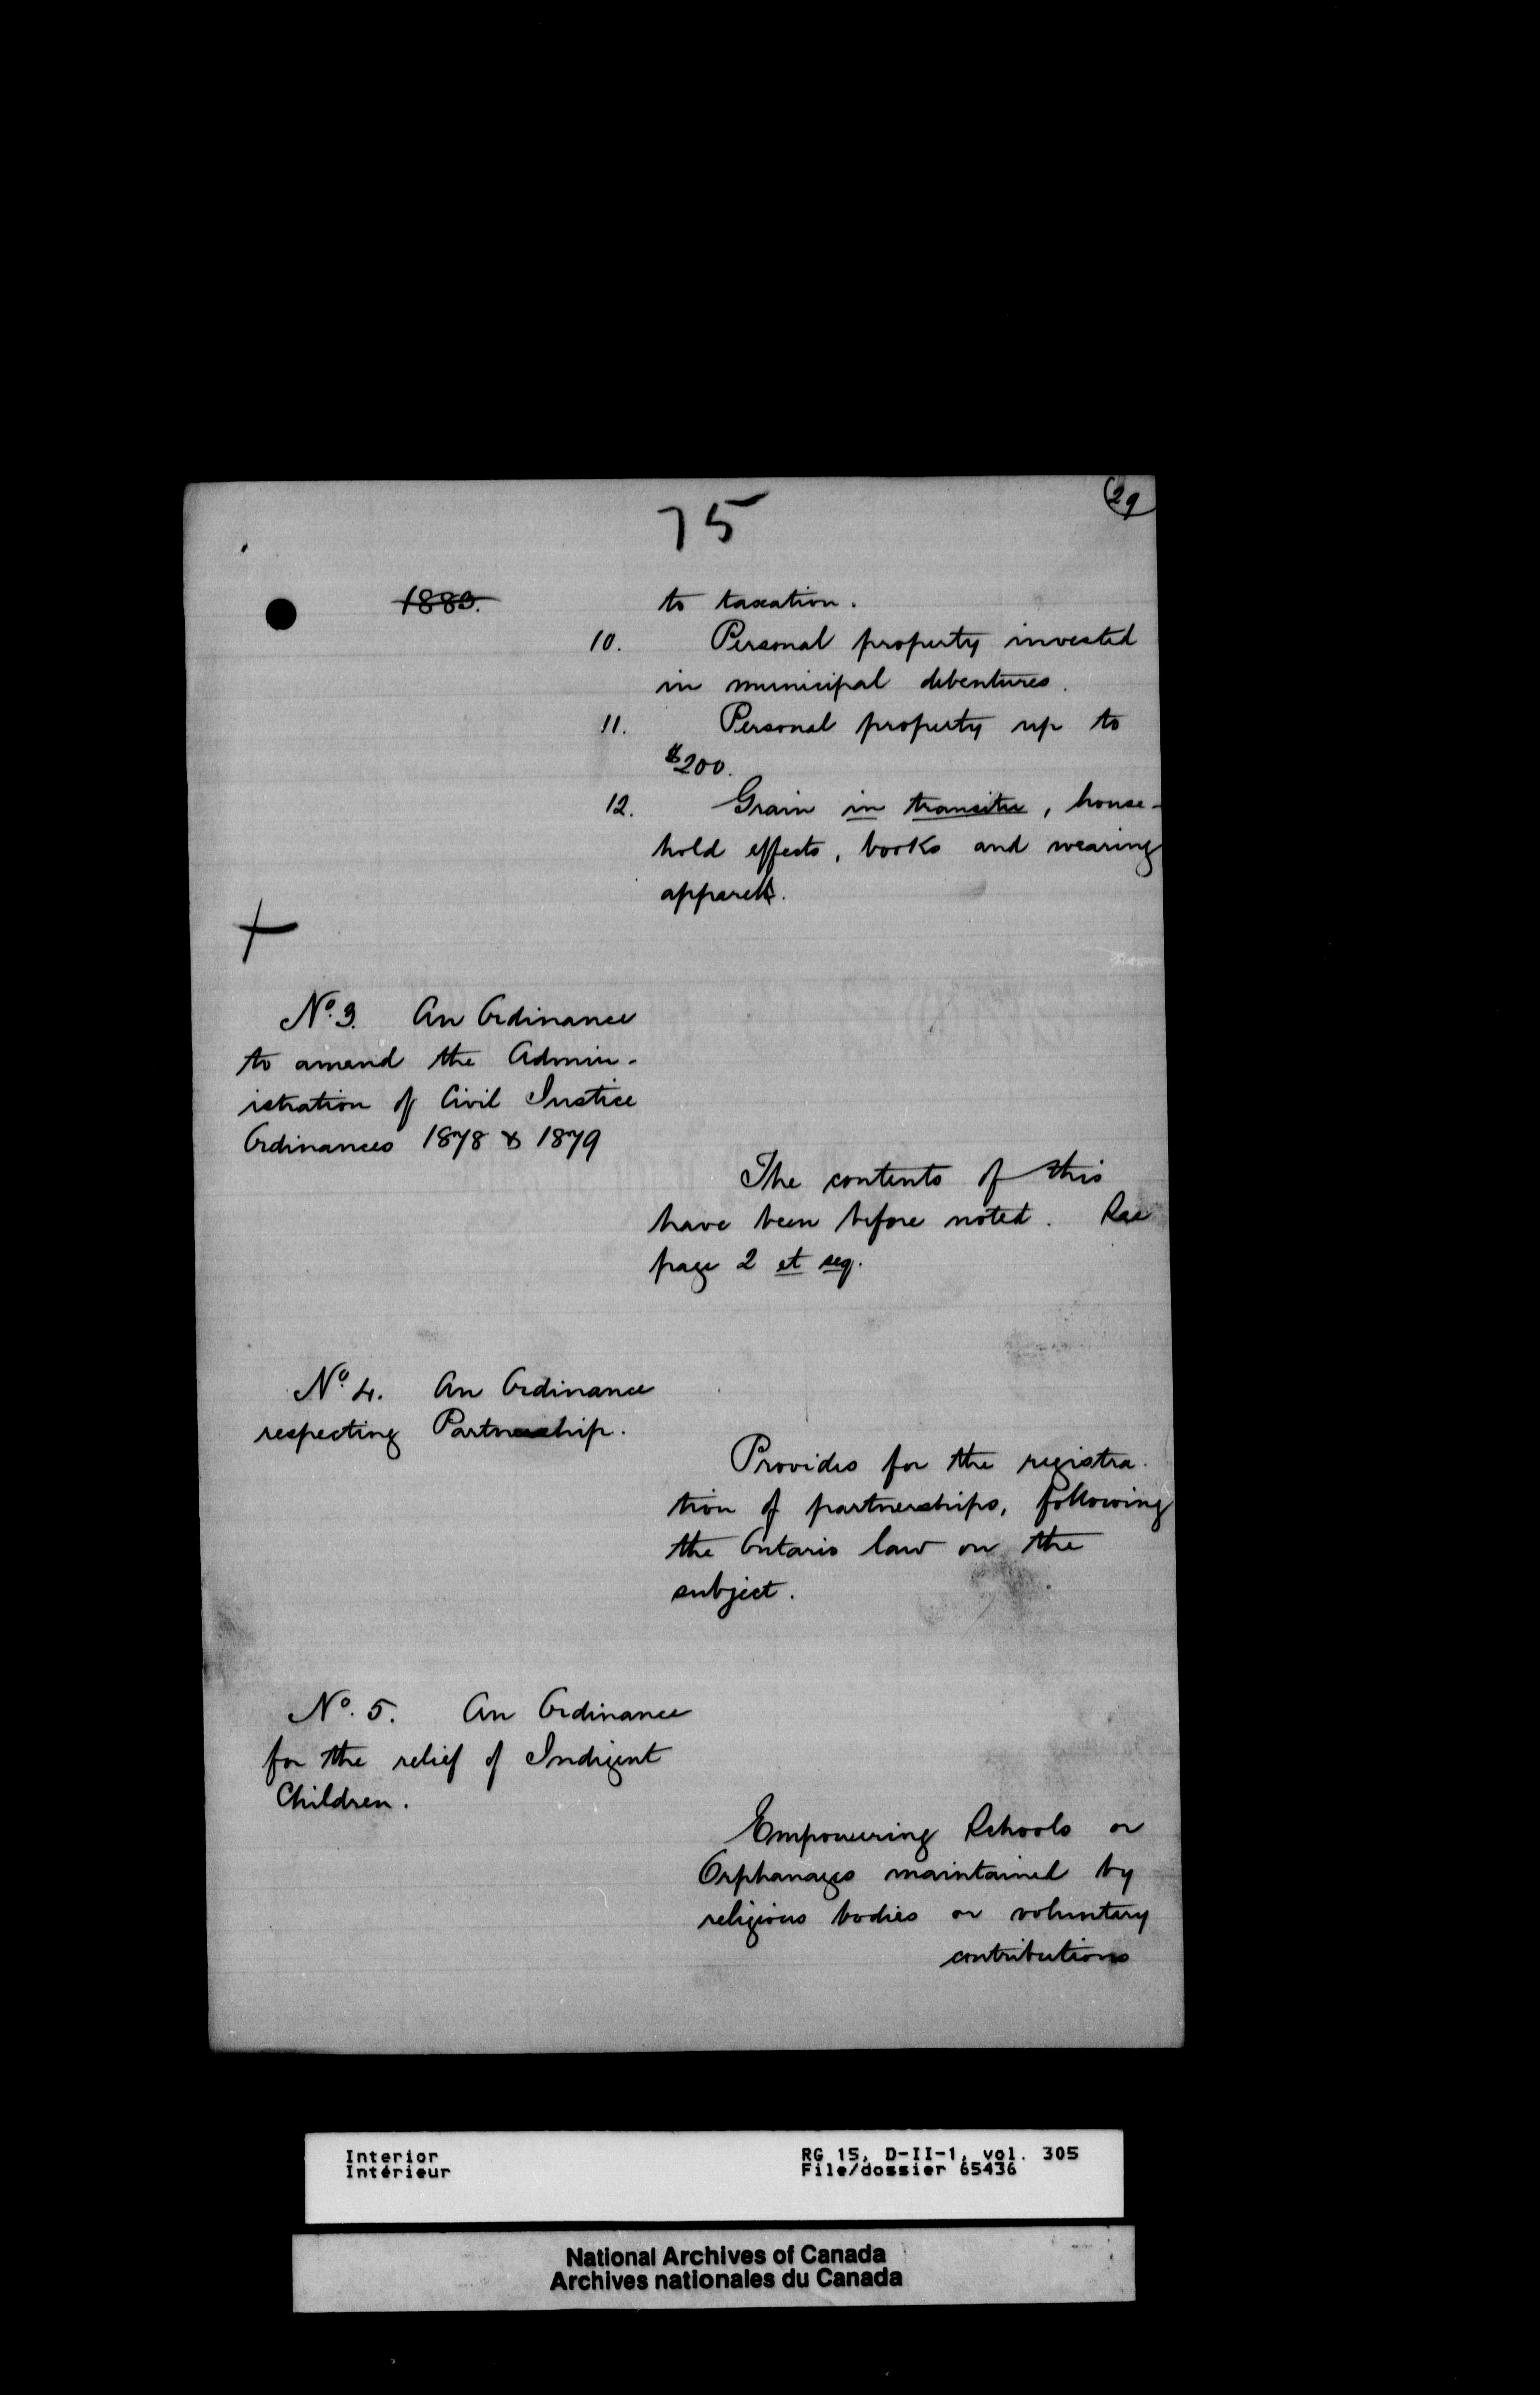 29
75
1883.
to taxation.
10. Personal property invested
in municipal debentures.
11. Personal property up to
$200.
12. Grain in transitu, house-
hold effects, books and wearing
apparel.
No. 3. An Ordinance
to amend the Admin-
istration of Civil Justice
Ordinances 1878 & 1879
The contents of this
have been before noted. See
page 2 et seq.
No. 4. An Ordinance
respecting Partnership.
Provides for the registra-
tion of partnerships, following
the Ontario law on the
subject.
No. 5. An Ordinance
for the relief of Indigent
Children.
Empowering Schools or
Orphanages maintained by
religious bodies or voluntary
contributions
Interior
Intérieur
RG 15, D-II-1, vol. 305
File/dossier 65436
National Archives of Canada
Archives nationales du Canada